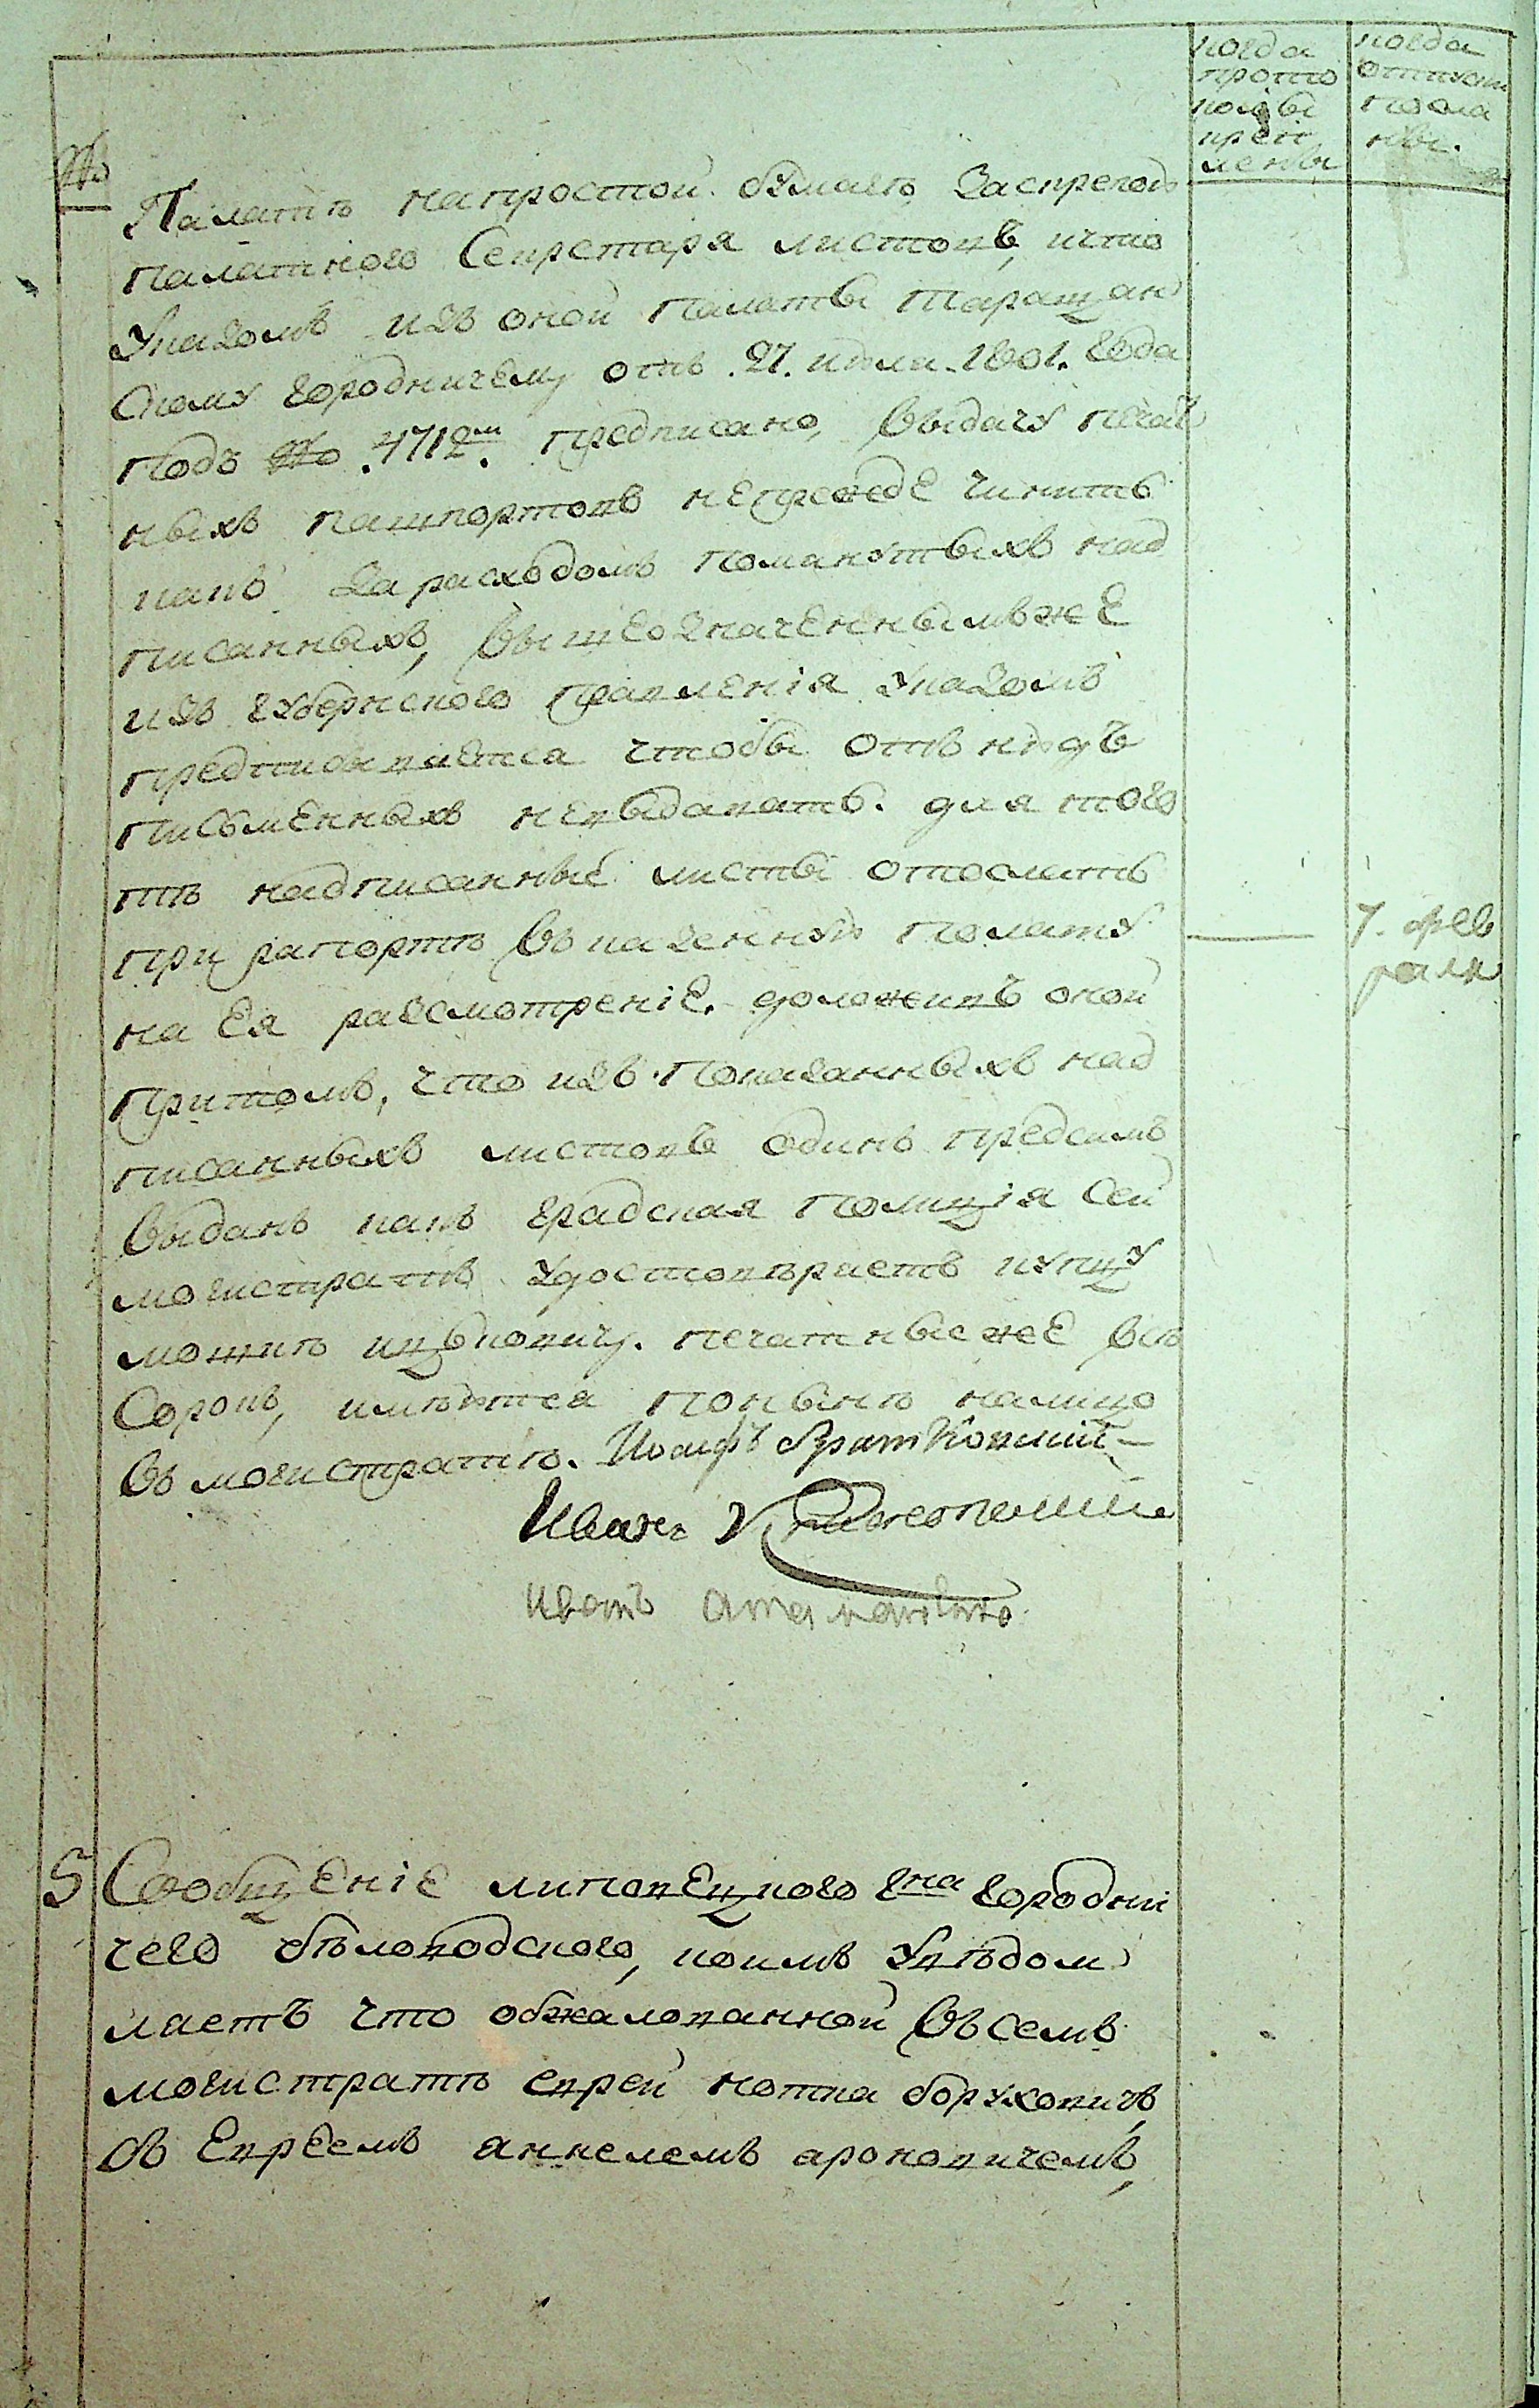 когда
прото
колы
крѣп
лены
когда
отпуски
посла
ны.
№
Палатѣ напростой бумагѣ Заскрепою
палатного Секретаря листовъ, ичто
Указомъ изъ оной палаты таращан
Скому городничему отъ .27. июля 1801. года
подъ № .4712м. предписано, выдачу печат
ныхъ пашпортовъ непрежде чинить
какъ за расходомъ помянутыхъ над
писанныхъ, вышеозначеннымъже
изъ губернского правленія указомъ
предписывается чтобы отъ нюдъ
писменныхъ невыдавать. для того
тѣ надписанные листы отослать
при рапортѣ въ казенную полату
на Ея разсмотреніе. доложивъ оной
притомъ, что изъ показанныхъ над
писанныхъ листовъ одинъ предсимъ
выданъ какъ градская полиція Сей
могистратъ удостовѣряетъ купцу
мошкѣ ицковичу. печатныеже всѣ
Сорокъ, имѣются понынѣ налицо
въ могистратѣ.
Иванъ
Иванъ
7. фев
раля
5 Сообщеніе липовецкого гна городни
чего бѣловодского, коимъ Увѣдом
ляетъ что обжалованной въ семъ
могистратѣ еврей нотка боруховичъ,
съ Евреемъ янкелемъ ароновичемъ,